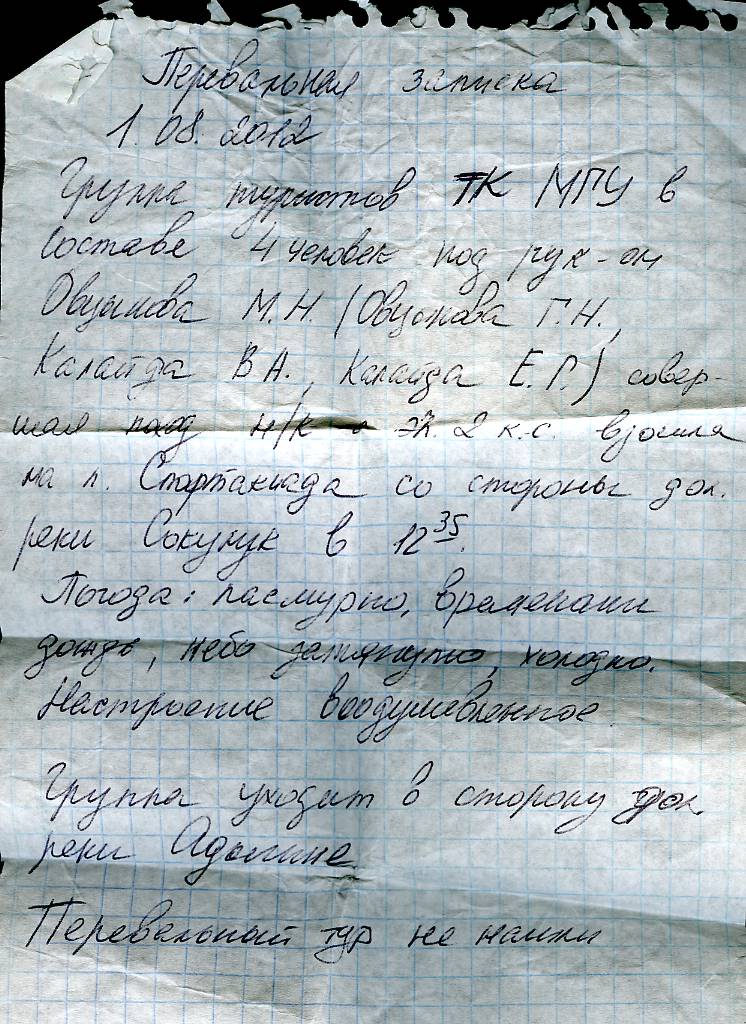 Перевальная записка
1.08.2012
Группа туристов ТК МГУ в
составе 4 человек под рук-ом
Овчинкова М.Н. (Овчинкова Г.Н.,
Калайда В А., Калайда Е.Г.) совер-
шая поход н/к эл. 2 к.с. взошла
на п. Спартакиада со стороны дол.
реки Сокулук в 12 35.
Погода: пасмурно, временами
дождь, небо затянуто, холодно.
Настроение воодушевленное
Группа уходит в сторону дол.
реки
Перевальный тур не нашли